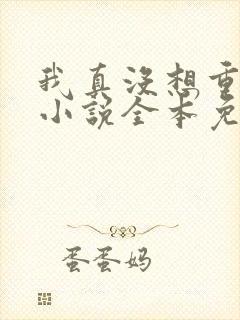 我真没想重
小说全本免
蛋蛋妈